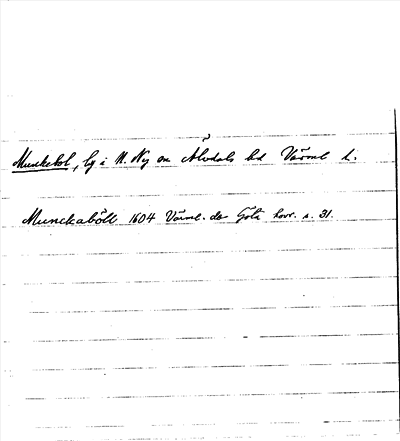 Munkebol, by i N. Ny sn Älvdals hd Värml l.
Munckaböll 1604 Värml. Göta hovr. s. 31.